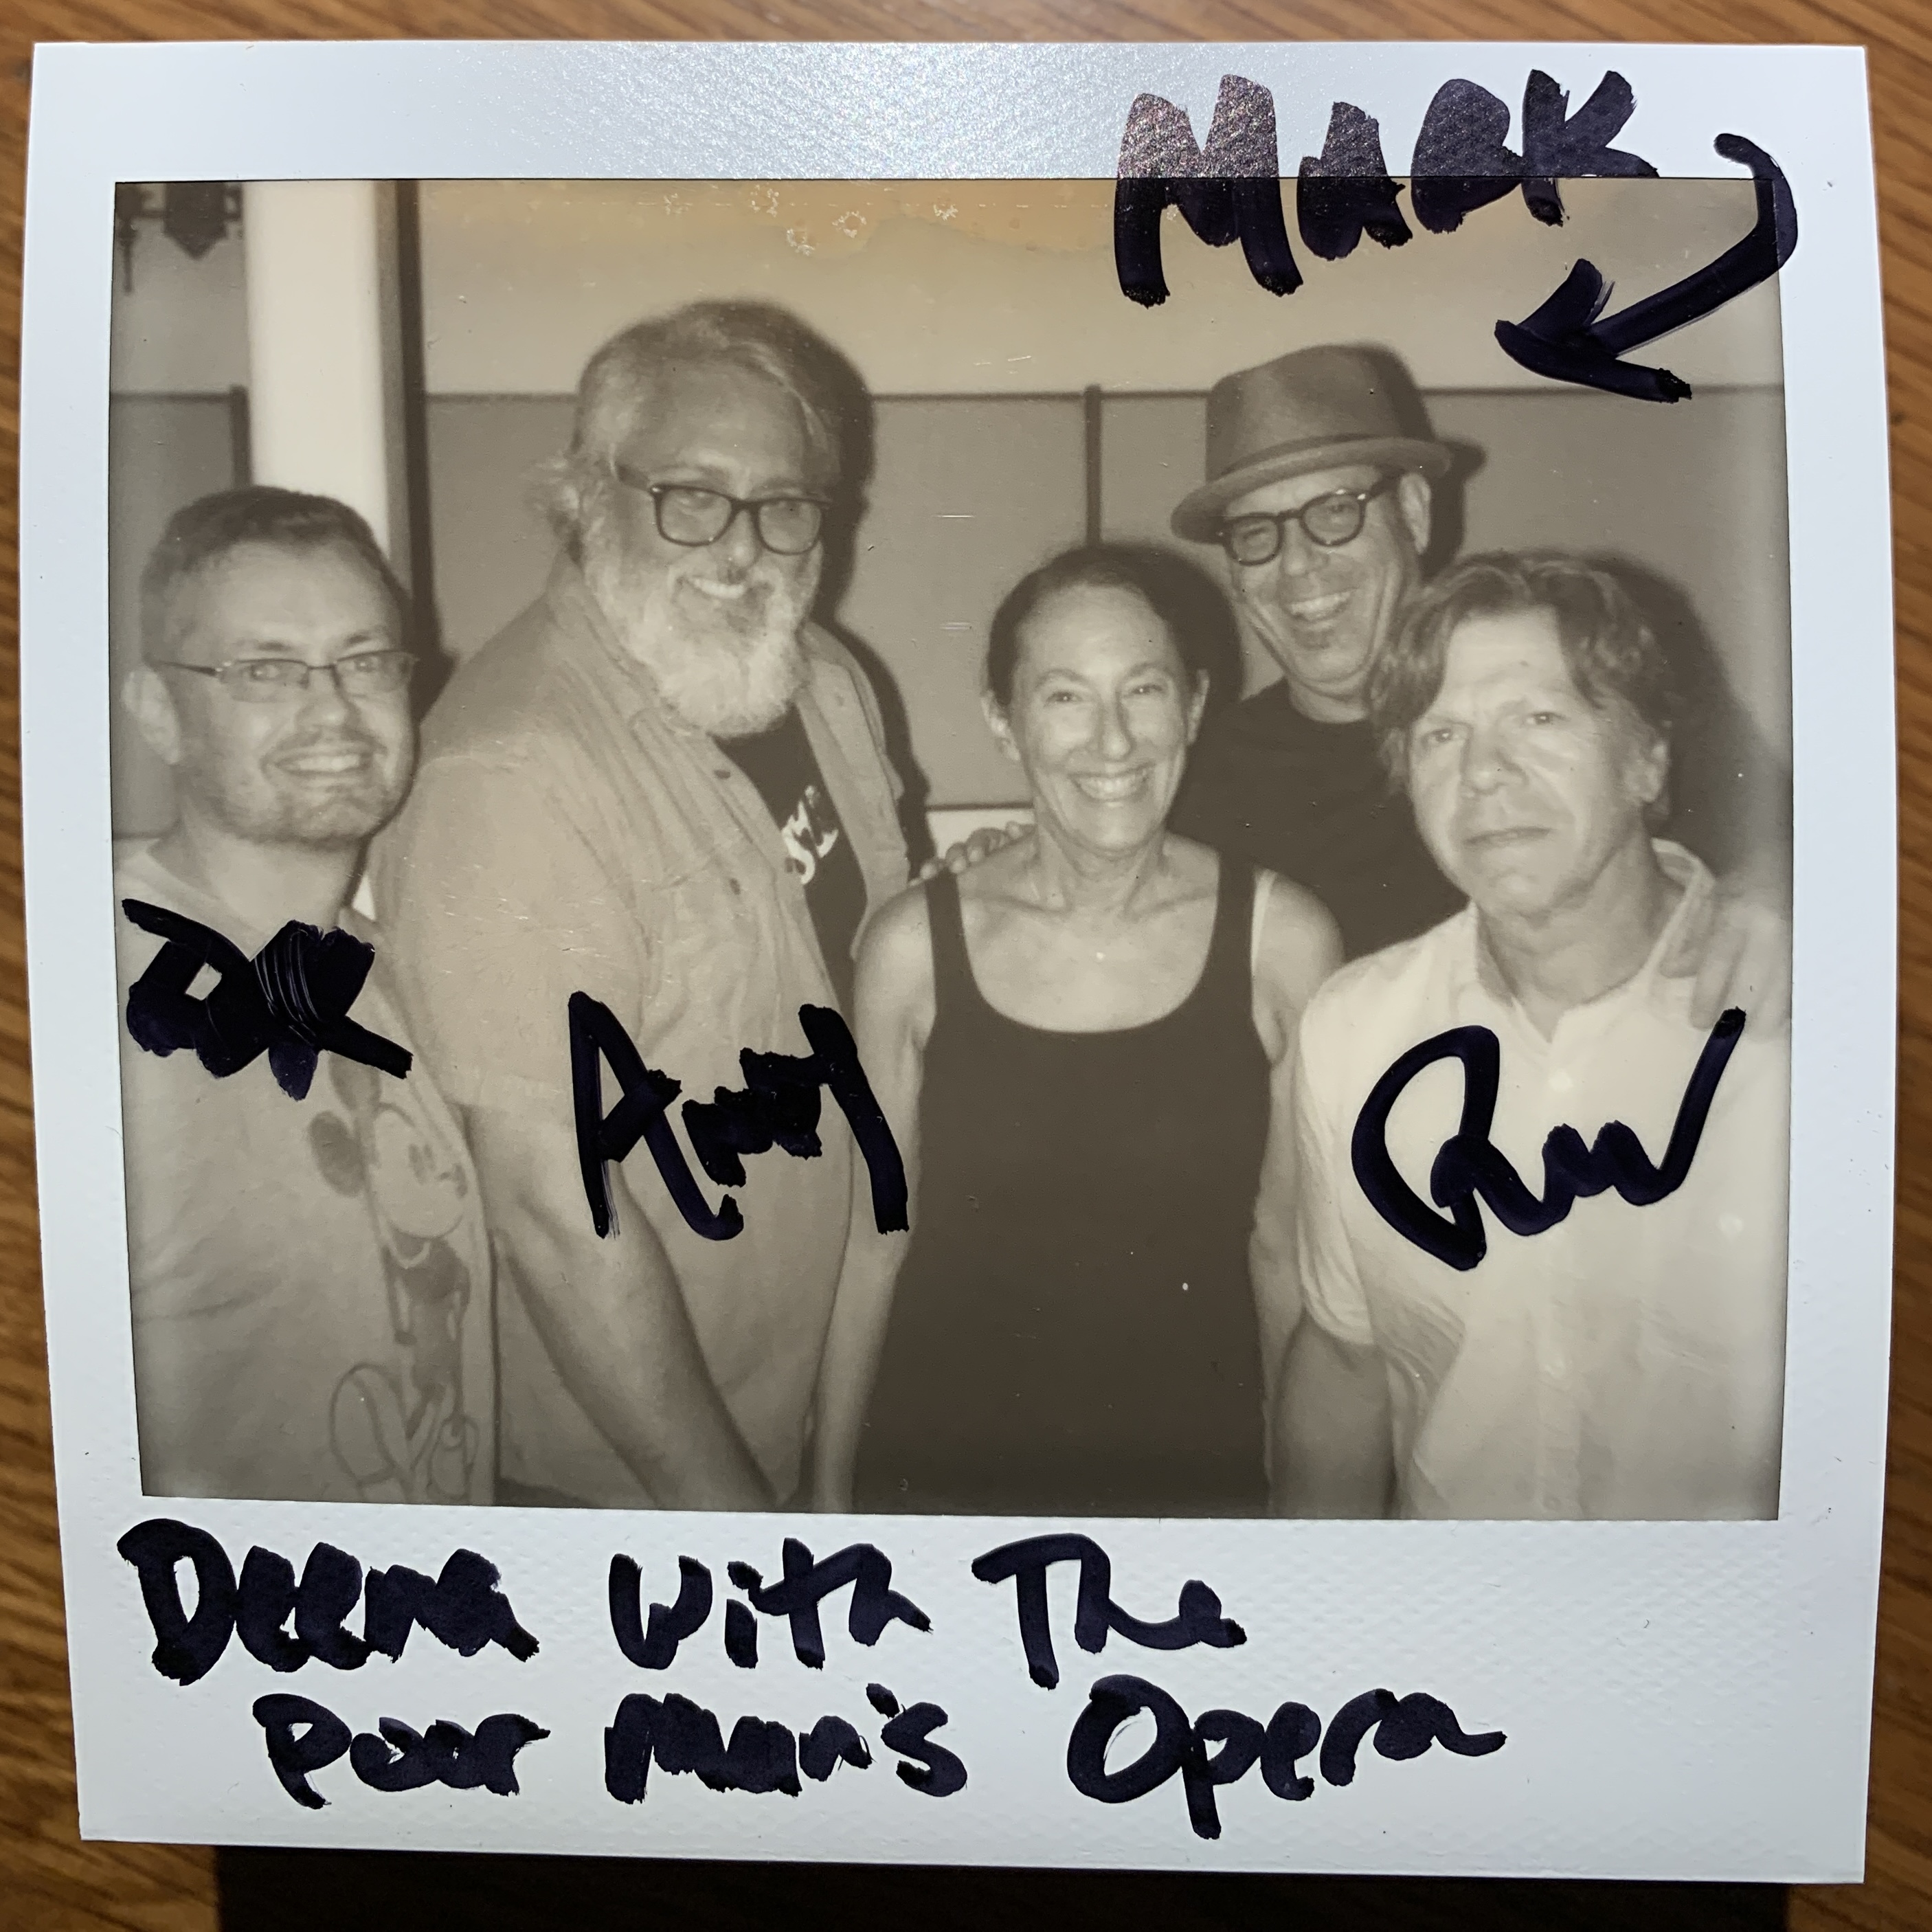 Mark
Amy
Deena with The
Poor Man's Opera